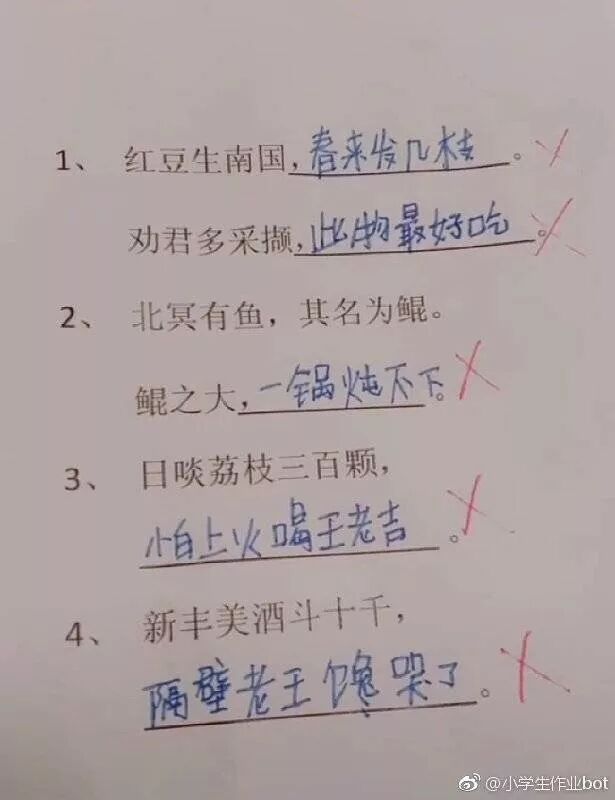 1、 红豆生南国,春来发几枝。
劝君多采撷,此物最好吃。
2、 北冥有鱼，其名为鲲。
鲲之大,一锅炖不下。
3、 日啖荔枝三百颗，
怕上火喝王老吉。
4、 新丰美酒斗十千，
隔壁老王馋哭了。
@小学生作业bot